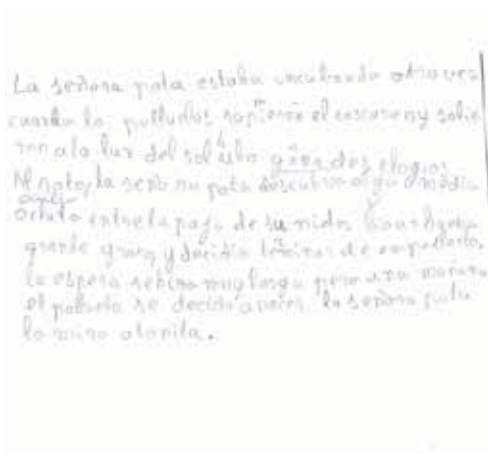 La señora pata estaba encubando otra vez
cuando lo polludos ronpieron el cascaron y salie
ron a la luz del sol ubo grandes elogios
Al rato, la señora pata descubrio algo medio
oculto entre la paja de su nido
grande y raro y decidio terminar de empollarlo.
la espera se hizo muy larga pero una mañana
el polludo se decidio a nacer. la señora pata
lo miro atonita.